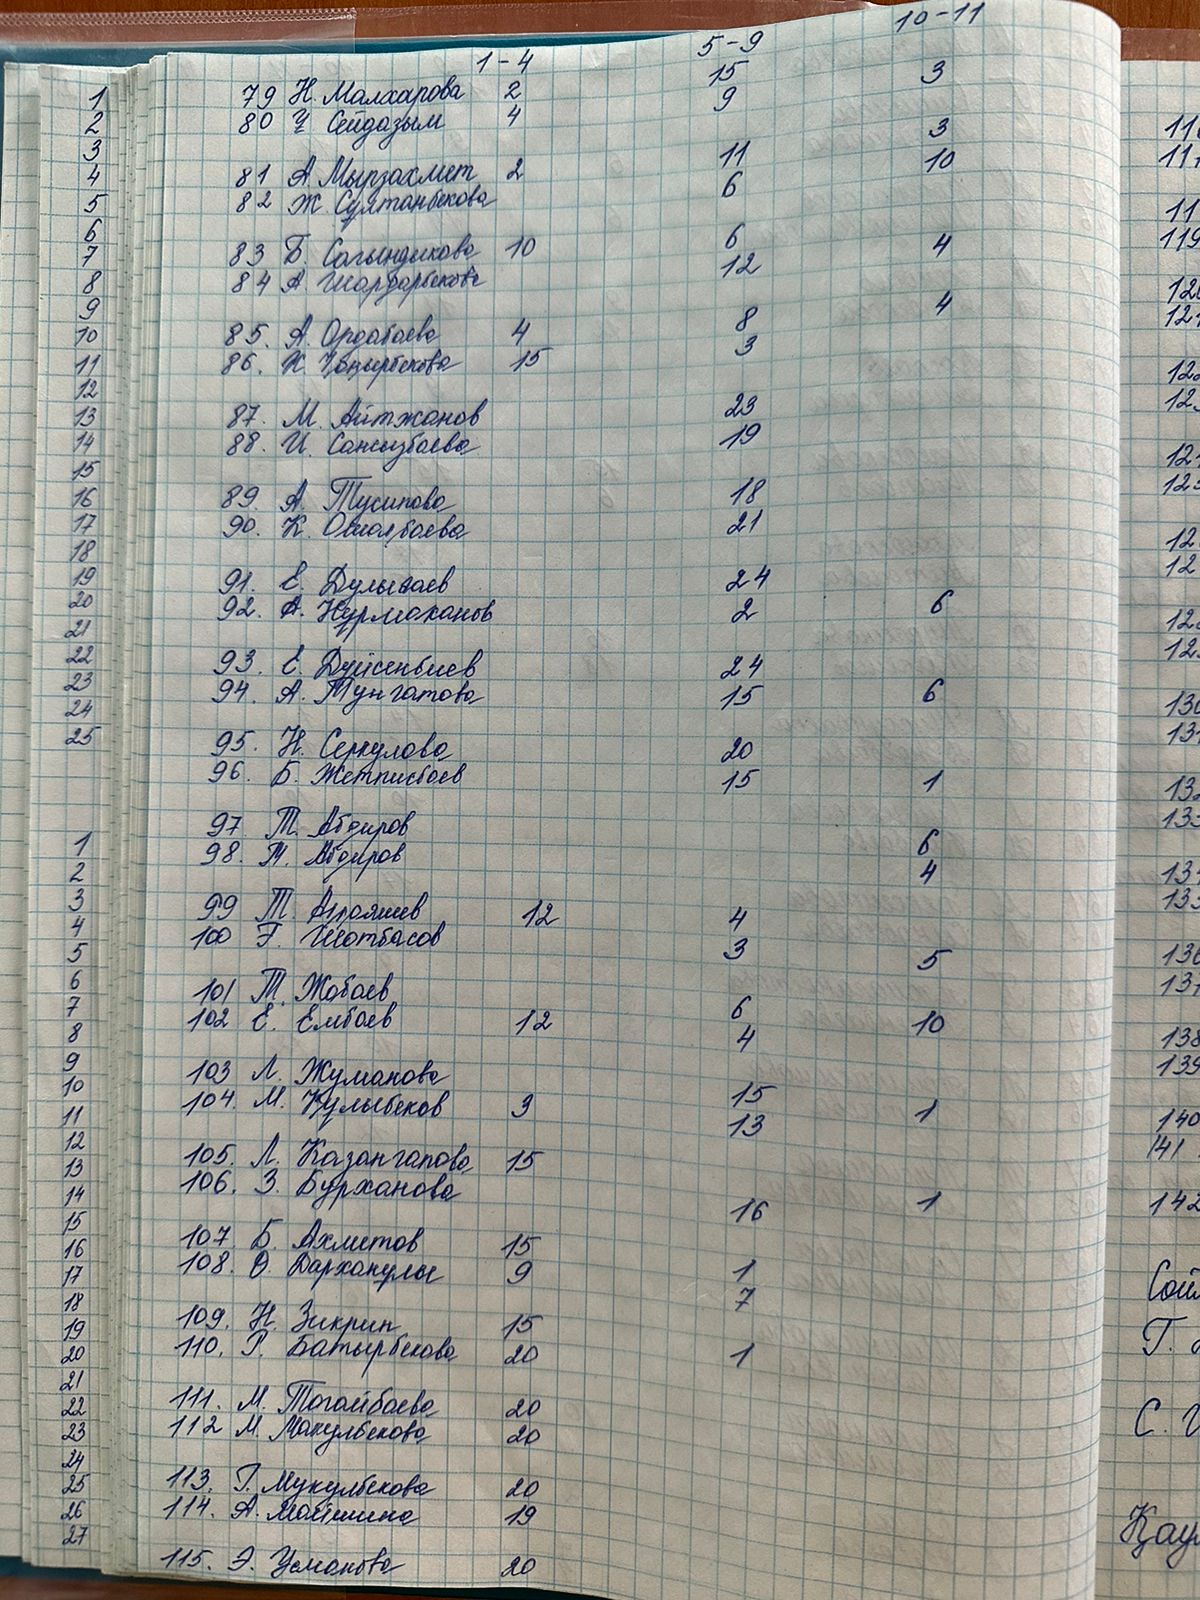 1-4 5-9 10-11
1 79 Н. Малхарова 2 15 3
2 80 Ұ Сейдазым 4 9
3 3
4 81 А. Мырзахмет 2 11 10
5 82 Ж Султанбекова 6
6
7 83 Б. Сагындикова 10 6 4
8 84 А. Шардарбекова 12
9 4
10 85. А. Ордабаева 4 8
11 86. К. 15 3
12
13 87. М. Айтжанов 23
14 88. И. Сансызбаева 19
15
16 89. А. Тусипова 18
17 90. К. Ошалбаева 21
18
19 91. Е. 24
20 92. А. Нурмаханов 2 6
21
22 93. Е. Дуйсенбиев 24
23 94. А. Тунгатова 15 6
24
25 95. Н. Серкулова 20
96. Б. Жетписбаев 15 1
97 Т. Абдиров
1 98. Т. Абдиров 6
2 4
3 99 Т. 12 4
4 100 Шотбасов 3
5 5
6 101 Т. Жабаев 6
7 102 Е. Ембаев 12 4 10
8
9 103 Л. Жуманова 15
10 104. М. Кулыбеков 3 13 1
11
12 105. Л. Казангапова 15
13 106. З. Бурханова 16 1
14
15 107. Б. Ахметов 15 1
16 108. О. Дарханулы 9 7
17
18 109. Н. Зикрин 15
19 110. Р. Батырбекова 20 1
20
21 111. М. Тогайбаева 20
22 112 М. Макулбекова 20
23
24 113. Г. Мукулбекова 20
25 114. А. 19
26
27 115. Э. Усманова 20
119
138
139
140
141
142
Г.
С.